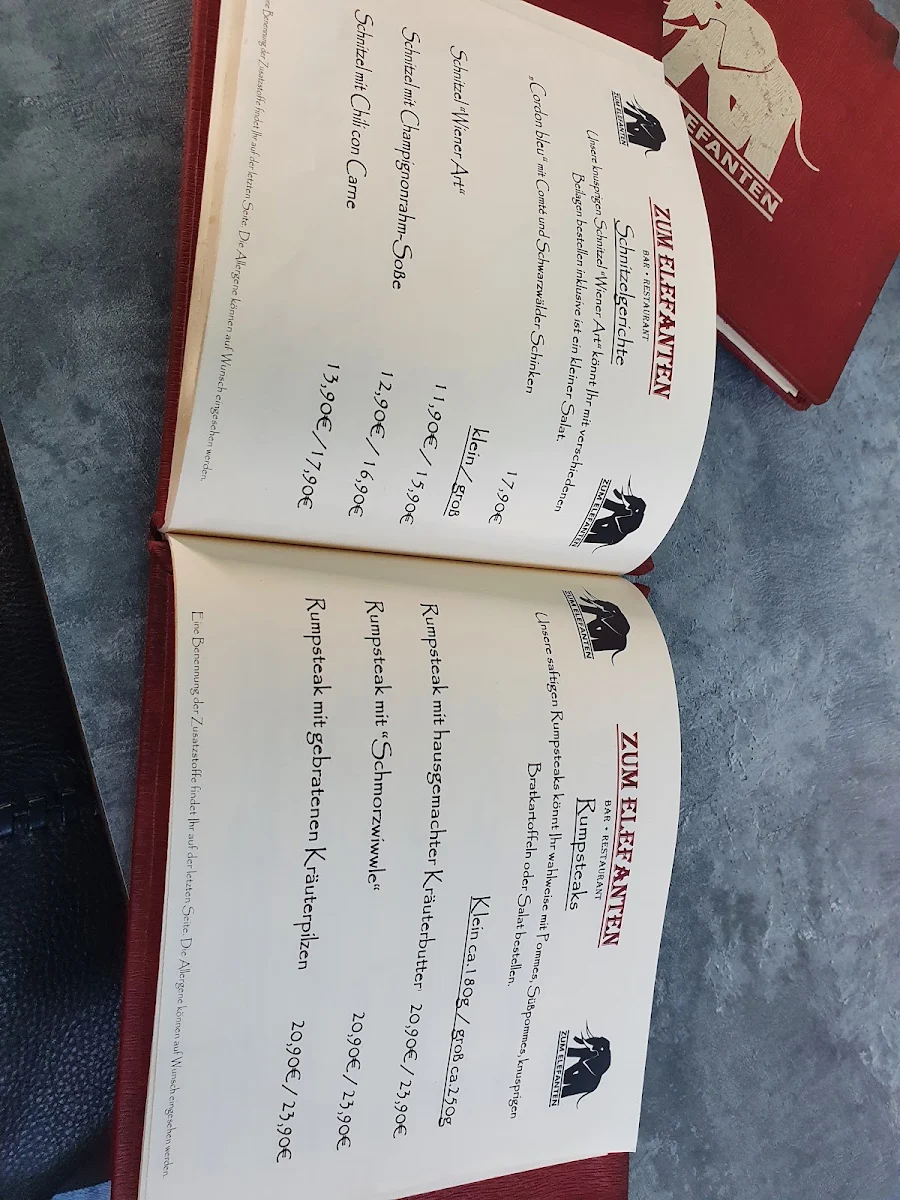 ZUM ELEFANTEN
ZUM ELEFANTEN
BAR • RESTAURANT
ZUM ELEFANTEN
Schnitzelgerichte
Unsere knusprigen Schnitzel "Wiener Art" könnt Ihr mit verschiedenen
Beilagen bestellen inklusive ist ein kleiner Salat.
„Cordon bleu" mit Comté und Schwarzwälder Schinken 17,90€
klein / groß
Schnitzel "Wiener Art" 11,90€ / 15,90€
Schnitzel mit Champignonrahm-Soße 12,90€ / 16,90€
Schnitzel mit Chili con Carne 13,90€ / 17,90€
Eine Benennung der Zusatzstoffe findet Ihr auf der letzten Seite. Die Allergene können auf Wunsch eingesehen werden.
ZUM ELEFANTEN
ZUM ELEFANTEN
BAR • RESTAURANT
ZUM ELEFANTEN
Rumpsteaks
Unsere saftigen Rumpsteaks könnt Ihr wahlweise mit Pommes, Süßpommes, knusprigen
Bratkartoffeln oder Salat bestellen.
Klein ca.180g / groß ca.250g
Rumpsteak mit hausgemachter Kräuterbutter 20,90€ / 23,90€
Rumpsteak mit "Schmorzwiwwle" 20,90€ / 23,90€
Rumpsteak mit gebratenen Kräuterpilzen 20,90€ / 23,90€
Eine Benennung der Zusatzstoffe findet Ihr auf der letzten Seite. Die Allergene können auf Wunsch eingesehen werden.